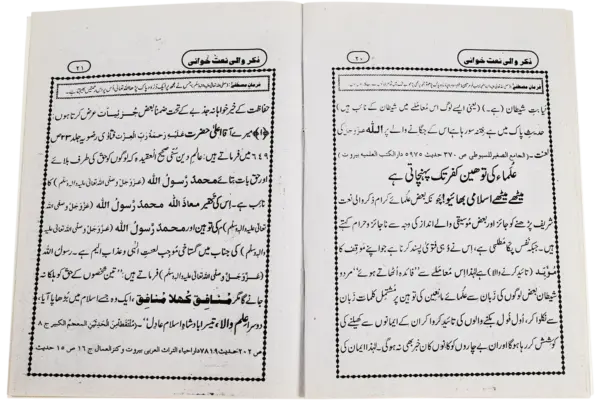 ذکر والی نعت خوانی
۲۰
کیا ہے شیطان (ہے۔) (یعنی ایسے لوگ اس معاملے میں شیطان کے نائب ہیں)
حدیثِ پاک میں ہے: فتنہ سو رہا ہے اس کے جگانے والے پر اللہ عزوجل کی
لعنت۔ (الجامع الصغیر للسیوطی ص ۳۷۰ حدیث ۵۹۷۵ دار الکتب العلمیہ بیروت)
علماء کی توہین کفر تک پہنچاتی ہے
میٹھے میٹھے اسلامی بھائیو! چونکہ بعض علمائے کرام ذکر والی نعت
شریف پڑھنے کو جائز اور بعض موسیقی والے انداز کی وجہ سے ناجائز و حرام کہتے
ہیں۔ جبکہ نفس پکا مطلبی ہے، اس نے وہی فتویٰ پسند کرنا ہے جو اپنے موقف کا
مؤید (تائید کرنے والا) ہے لہٰذا اس معاملے سے "فائدہ اُٹھاتے ہوئے" مردود
شیطان بعض لوگوں کی زبان سے علمائے مانعین کی توہین پر مشتمل کلمات زبان
سے نکلوا کر، اول فول بکنے والوں کی تائید کروا کر ان کے ایمانوں سے کھیلنے کی
کوشش کر رہا ہوگا اور ان بے چاروں کو کانوں کان خبر بھی نہ ہوگی۔ لہٰذا ایمان کی
ذکر والی نعت خوانی
۲۱
حفاظت کے خیر خواہانہ جذبے کے تحت ضمناً بعض جزئیات عرض کرتا ہوں:
﴿۱﴾ میرے آقا اعلیٰ حضرت علیہ رحمۃ رب العزت فتاویٰ رضویہ جلد ۲۳ ص
۶۴۹ میں فرماتے ہیں: عالمِ دین سنی صحیح العقیدہ کہ لوگوں کو حق کی طرف بلائے
اور حق بات بتائے محمد رسول اللہ (عزوجل و صلی اللہ تعالیٰ علیہ والہ وسلم) کا
نائب ہے۔ اس کی تحقیر معاذ اللہ محمد رسول اللہ (عزوجل و صلی اللہ
تعالیٰ علیہ والہ وسلم) کی توہین اور محمد رسول اللہ (عزوجل و صلی اللہ تعالیٰ علیہ
والہ وسلم) کی جناب میں گستاخی موجب لعنت الٰہی و عذاب الیم ہے۔ رسول اللہ
(عزوجل و صلی اللہ تعالیٰ علیہ والہ وسلم) فرماتے ہیں: "تین شخصوں کے حق کو ہلکا نہ
جانے گا مگر منافق کھلا منافق، ایک وہ جسے اسلام میں بڑھاپا آیا،
دوسرا علم والا، تیسرا بادشاہِ اسلام عادل"۔ (ملتقط من الحدیثین المعجم الکبیر ج ۸
ص ۲۰۲ حدیث ۷۸۱۹ دار احیاء التراث العربی بیروت و کنز العمال ج ۱۶ ص ۱۵ حدیث